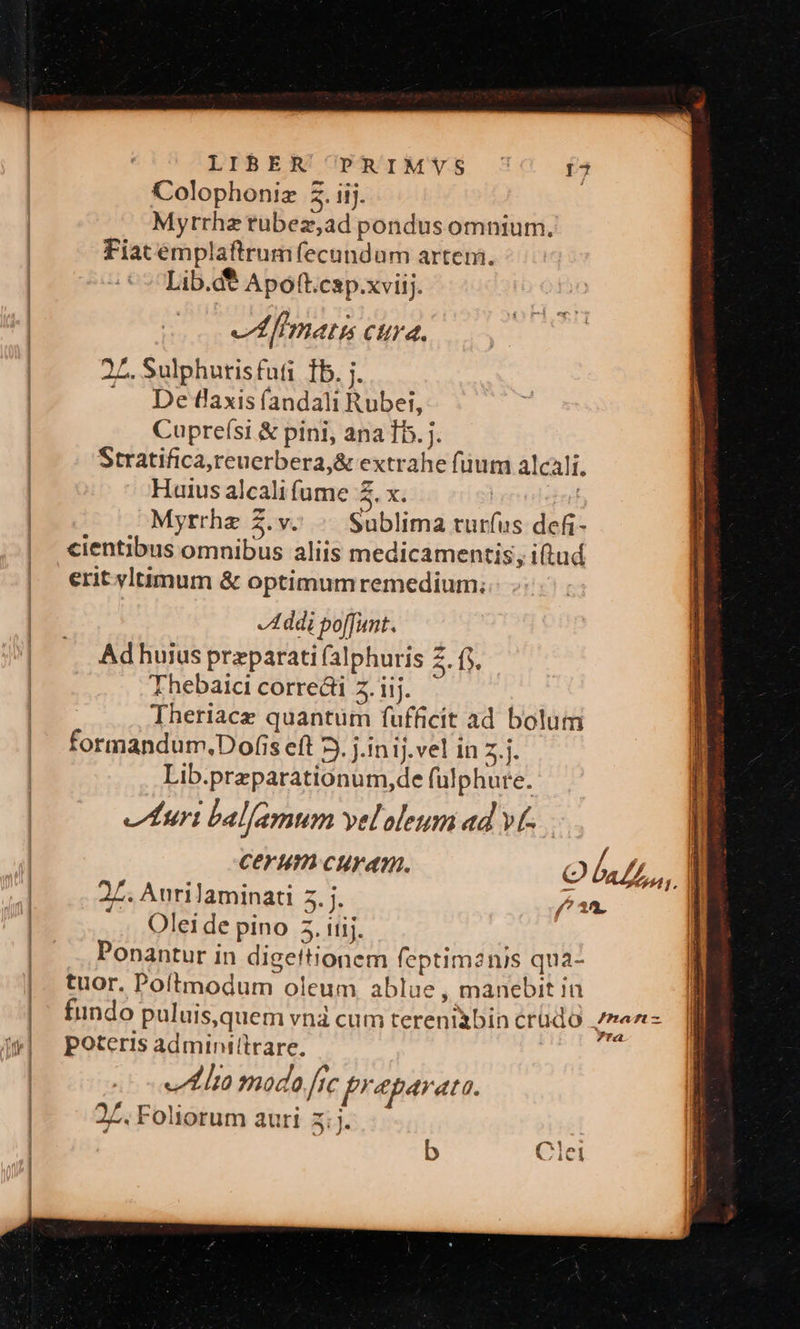 LIBER PRIMVS 17
Colophoniæ ℥. iij.
Myrrhæ rubeæ, ad pondus omnium.
Fiat emplaſtrum ſecundum artem.
Lib. de Apoſt. cap. xviij.
Aſſmatis cura.
℞. Sulphuris fuſi ℔. j.
De tlaxis ſandali Rubei,
Cupreſsi & pini, ana ℔. j.
Stratifica, reuerbera, & extrahe ſuum alcali.
Huius alcali ſume ℥. x.
Myrrhæ ℥. v. Sublima rurſus defi-
cientibus omnibus aliis medicamentis, iſtud
erit vltimum & optimum remedium.
Addi poſſunt.
Ad huius præparati ſalphuris ℥. ß.
Thebaici correcti ʒ. iij.
Theriacæ quantùm ſufficit ad bolum
formandum, Doſis eſt ℈. j. in ij. vel in ʒ. j.
Lib. præparationum, de ſulphure.
Auri balſamum vel oleum ad vl-
cerum curam.
℞. Auri laminati ʒ. j.
Olei de pino ʒ. iiij.
Ponantur in digeſtionem ſeptimanis qua-
tuor. Poſtmodum oleum ablue, manebit in
fundo puluis, quem vnà cum tereniàbin crudo
poteris adminiſtrare.
Alio modo ſic præparato.
℞. Foliorum auri ʒ. j.
b Olei